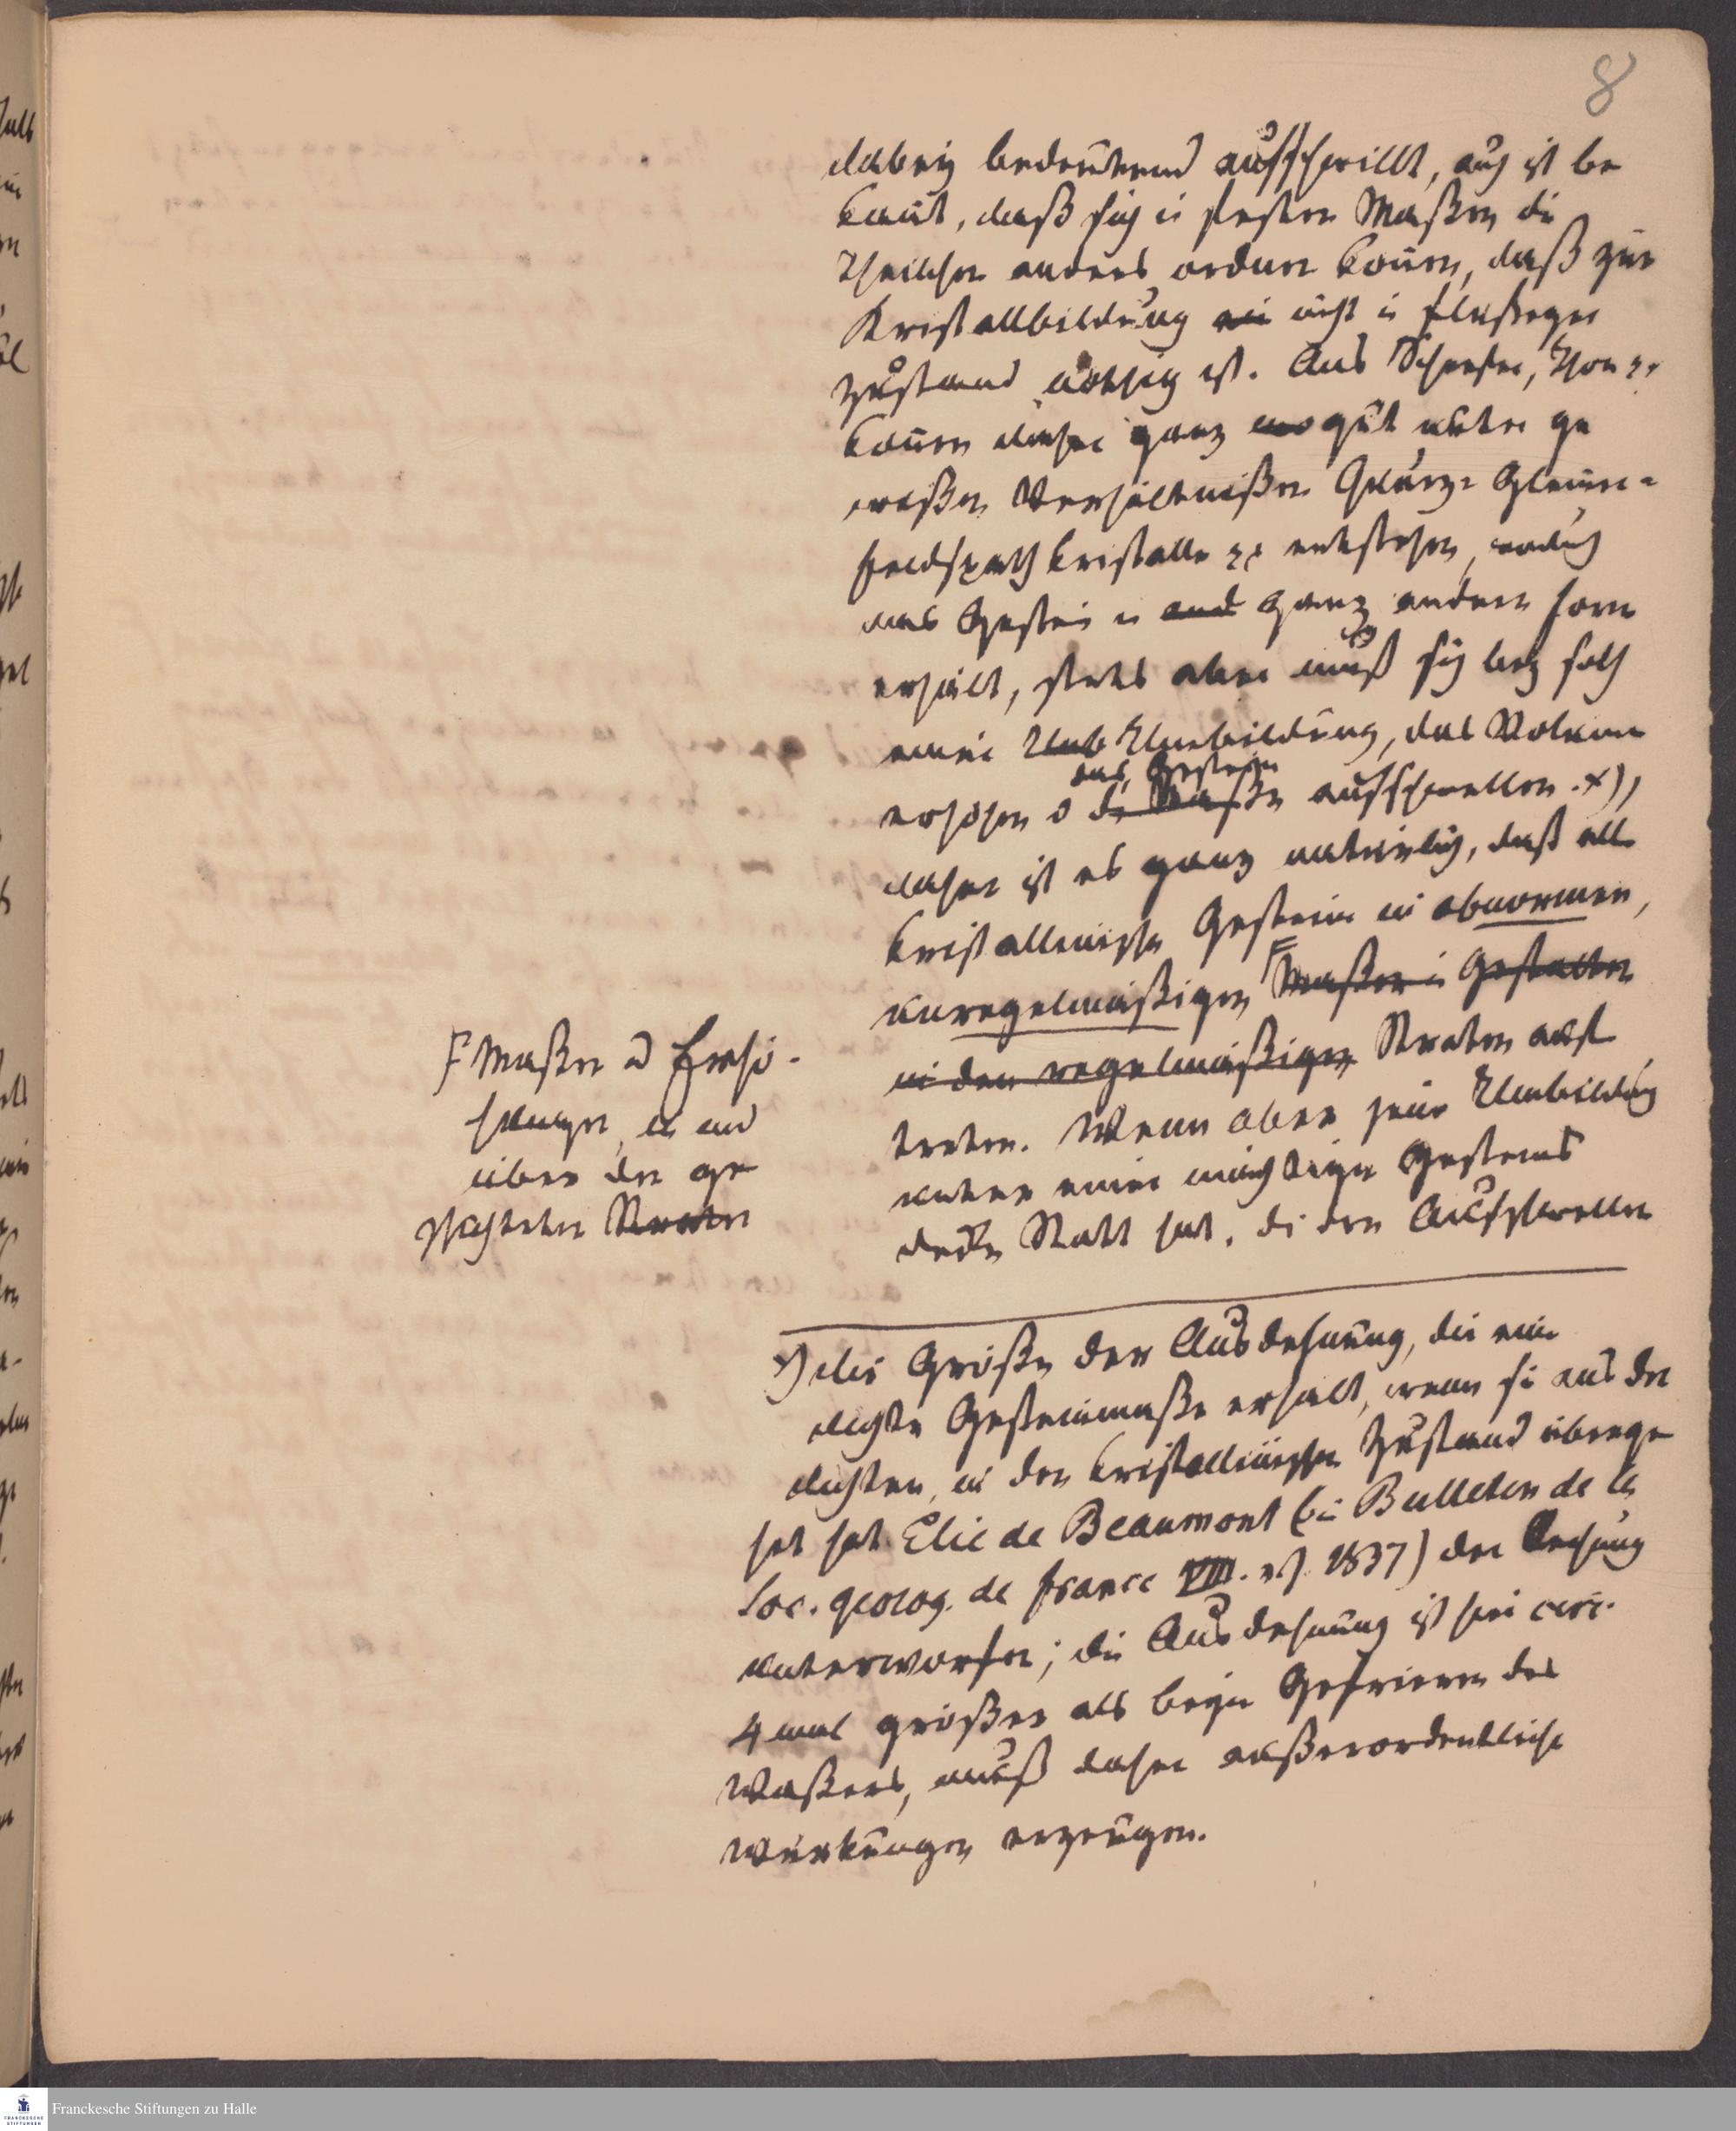 8
dabey bedeutend aufschwillt, auch ist be
kañt, daß sich in festen Maßen die
Theilchen anders ordnen koñen, daß zur
Kristallbildung ein nicht in flußiger
Zustand nothig ist. Aus Schiefer, Thon
koñen daher ganz gut unter ge
wißen Verhältnißen Quarz= Glimer=
feldspath kristalle entstehen, wodurch
das Gestein in and ganz andere form
erhält, stets aber muß sich bey solch
einer Umb Umbildung, das Volum
das Gestein
erhohen d die Maße aufschwellen. x),
daher ist es ganz natürlich, daß alle
kristallinische Gesteine in abnormen,
unregelmäßigen F Maßen in Gestalten
in den regelmäßigen Straten auf
treten. Wenn aber jene Umbildung
unter einer mächtigen Gesteins
decke Statt hat, die den Aufschwellen
F Maßen d Erhö-
hungen, in und
über den ge
schichteten Straten
x) die Größe der Ausdehnung, die eine
dichte Gesteinmaße erhält, wenn sie aus den
dichten, in den kristallinischen Zustand überge
het hat Elie de Beaumont (in Bulleten de la
Soc. geolog. de france VIII. 1837) der Rechnung
unterworfen; die Ausdehnung ist hier circ.
4 mal größer als beym Gefrieren des
Waßers, muß daher außerordentliche
Würkungen erzeugen.
Franckesche Stiftungen zu Halle